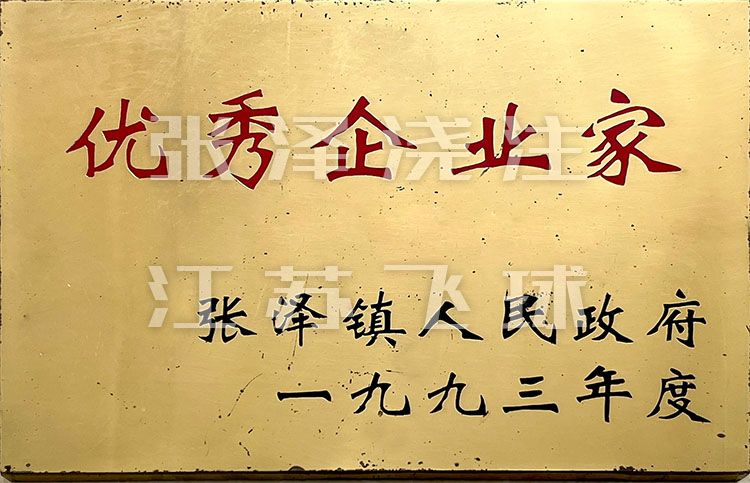 优秀企业家
张泽浇注
江苏飞球
张泽镇人民政府
一九九三年度